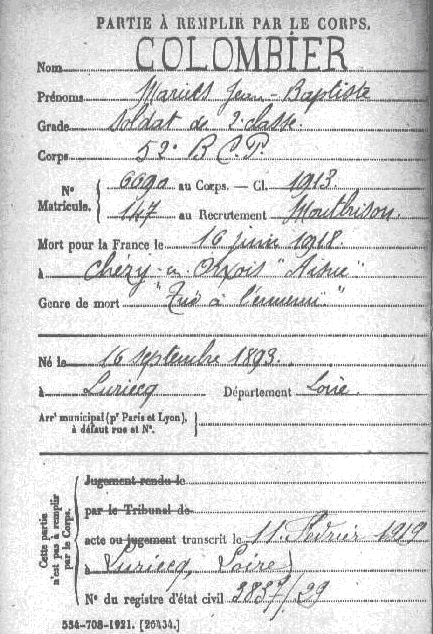 PARTIE À REMPLIR PAR LE CORPS.
Nom COLOMBIER
Prénoms Marius Jean-Baptiste
Grade Soldat de 2e classe.
Corps 52e B C P.
N° Matricule. { 6690 au Corps. — Cl. 1913
147 au Recrutement Montbrison.
Mort pour la France le 16 juin 1918.
à Chézy-en Orxois "Aisne"
Genre de mort "Tué à l'ennemi"
Né le 16 septembre 1893.
à Luriecq Département Loire
Arrt municipal (pr Paris et Lyon), à défaut rue et N°. }
Cette partie n'est pas à remplir par le Corps. { Jugement rendu le
par le Tribunal de
acte ou jugement transcrit le 11 Février 1919
à Luriecq, Loire)
N° du registre d'état civil 3837/29
534-708-1921. [26434.]